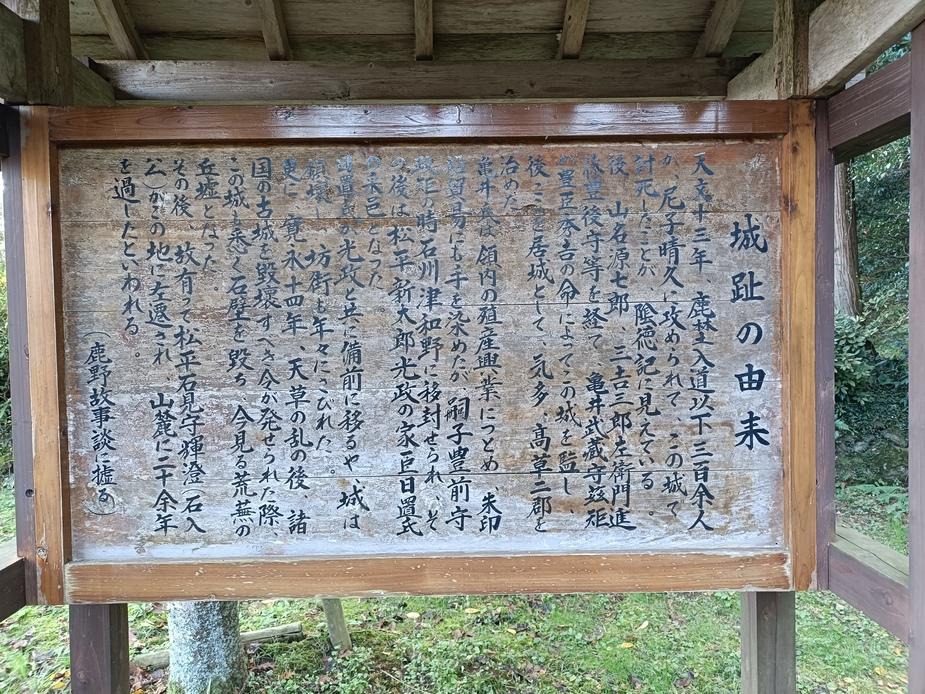 城趾の由来
天文十三年、鹿埜入道以下三百余人
が、尼子晴久に攻められて、この城で
討死したことが、陰徳記に見えている。
後、山名源七郎、三吉三郎左衛門進
豊後守等を経て、亀井武蔵守茲矩
が豊臣秀吉の命によってこの城を監し、
後ここを居城として、気多、高草二郡を
治めた
亀井氏は領内の殖産興業につとめ、朱印
船貿易にも手を染めたが、嗣子豊前守
政矩の時石川津和野に移封せられ、そ
の後は松平新太郎光政の家臣日置氏
の采邑となった。
が光政と共に備前に移るや、城は
頽壊し、坊街も年々にさびれた。
更に、寛永十四年、天草の乱の後、諸
国の古城を毀壊すべき令が発せられた際、
この城も悉く石壁を毀ち、今見る荒蕪の
丘墟となった。
その後、故有って松平石見守輝澄（石入
公）がこの地に左遷され、山麓に二十余年
を過したといわれる。
（鹿野故事談に據る）